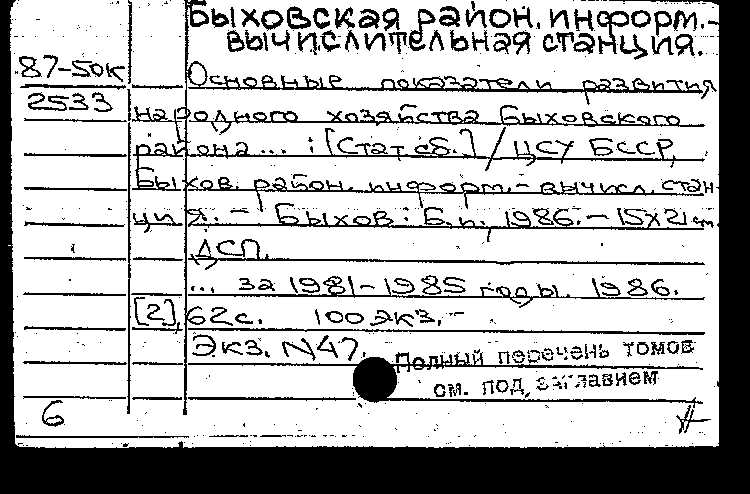 Быховская район. информ.-
вычислительная станция.
87-50к Основные показатели развития
2533 народного хозяйства Быховского
района... : [Стат. сб.] / ЦСУ БССР,
Быхов. район. информ.- вычисл. стан-
ция. - Быхов : Б.и., 1986. - 15х21 см.
ДСП.
... за 1981-1985 годы. 1986.
[2], 62с. 100 экз. -
Экз. N47.
Полный перечень томов
см. под заглавием
6